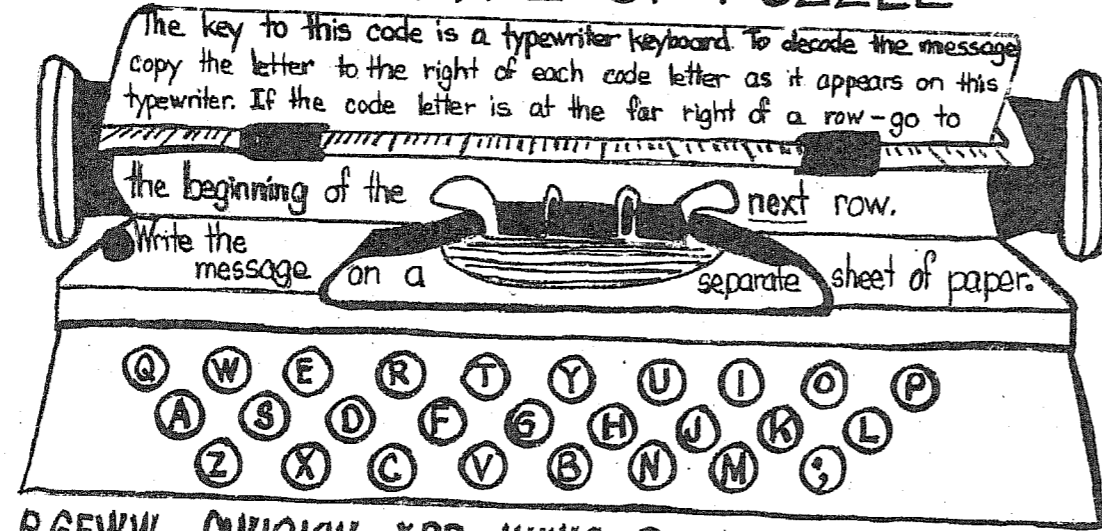 The key to this code is a typewriter keyboard. To decode the message
copy the letter to the right of each code letter as it appears on this
typewriter. If the code letter is at the far right of a row - go to
the beginning of the next row.
Write the
message on a separate sheet of paper.
Q W E R T Y U I O P
A S D F G H J K L
Z X C V B N M ;